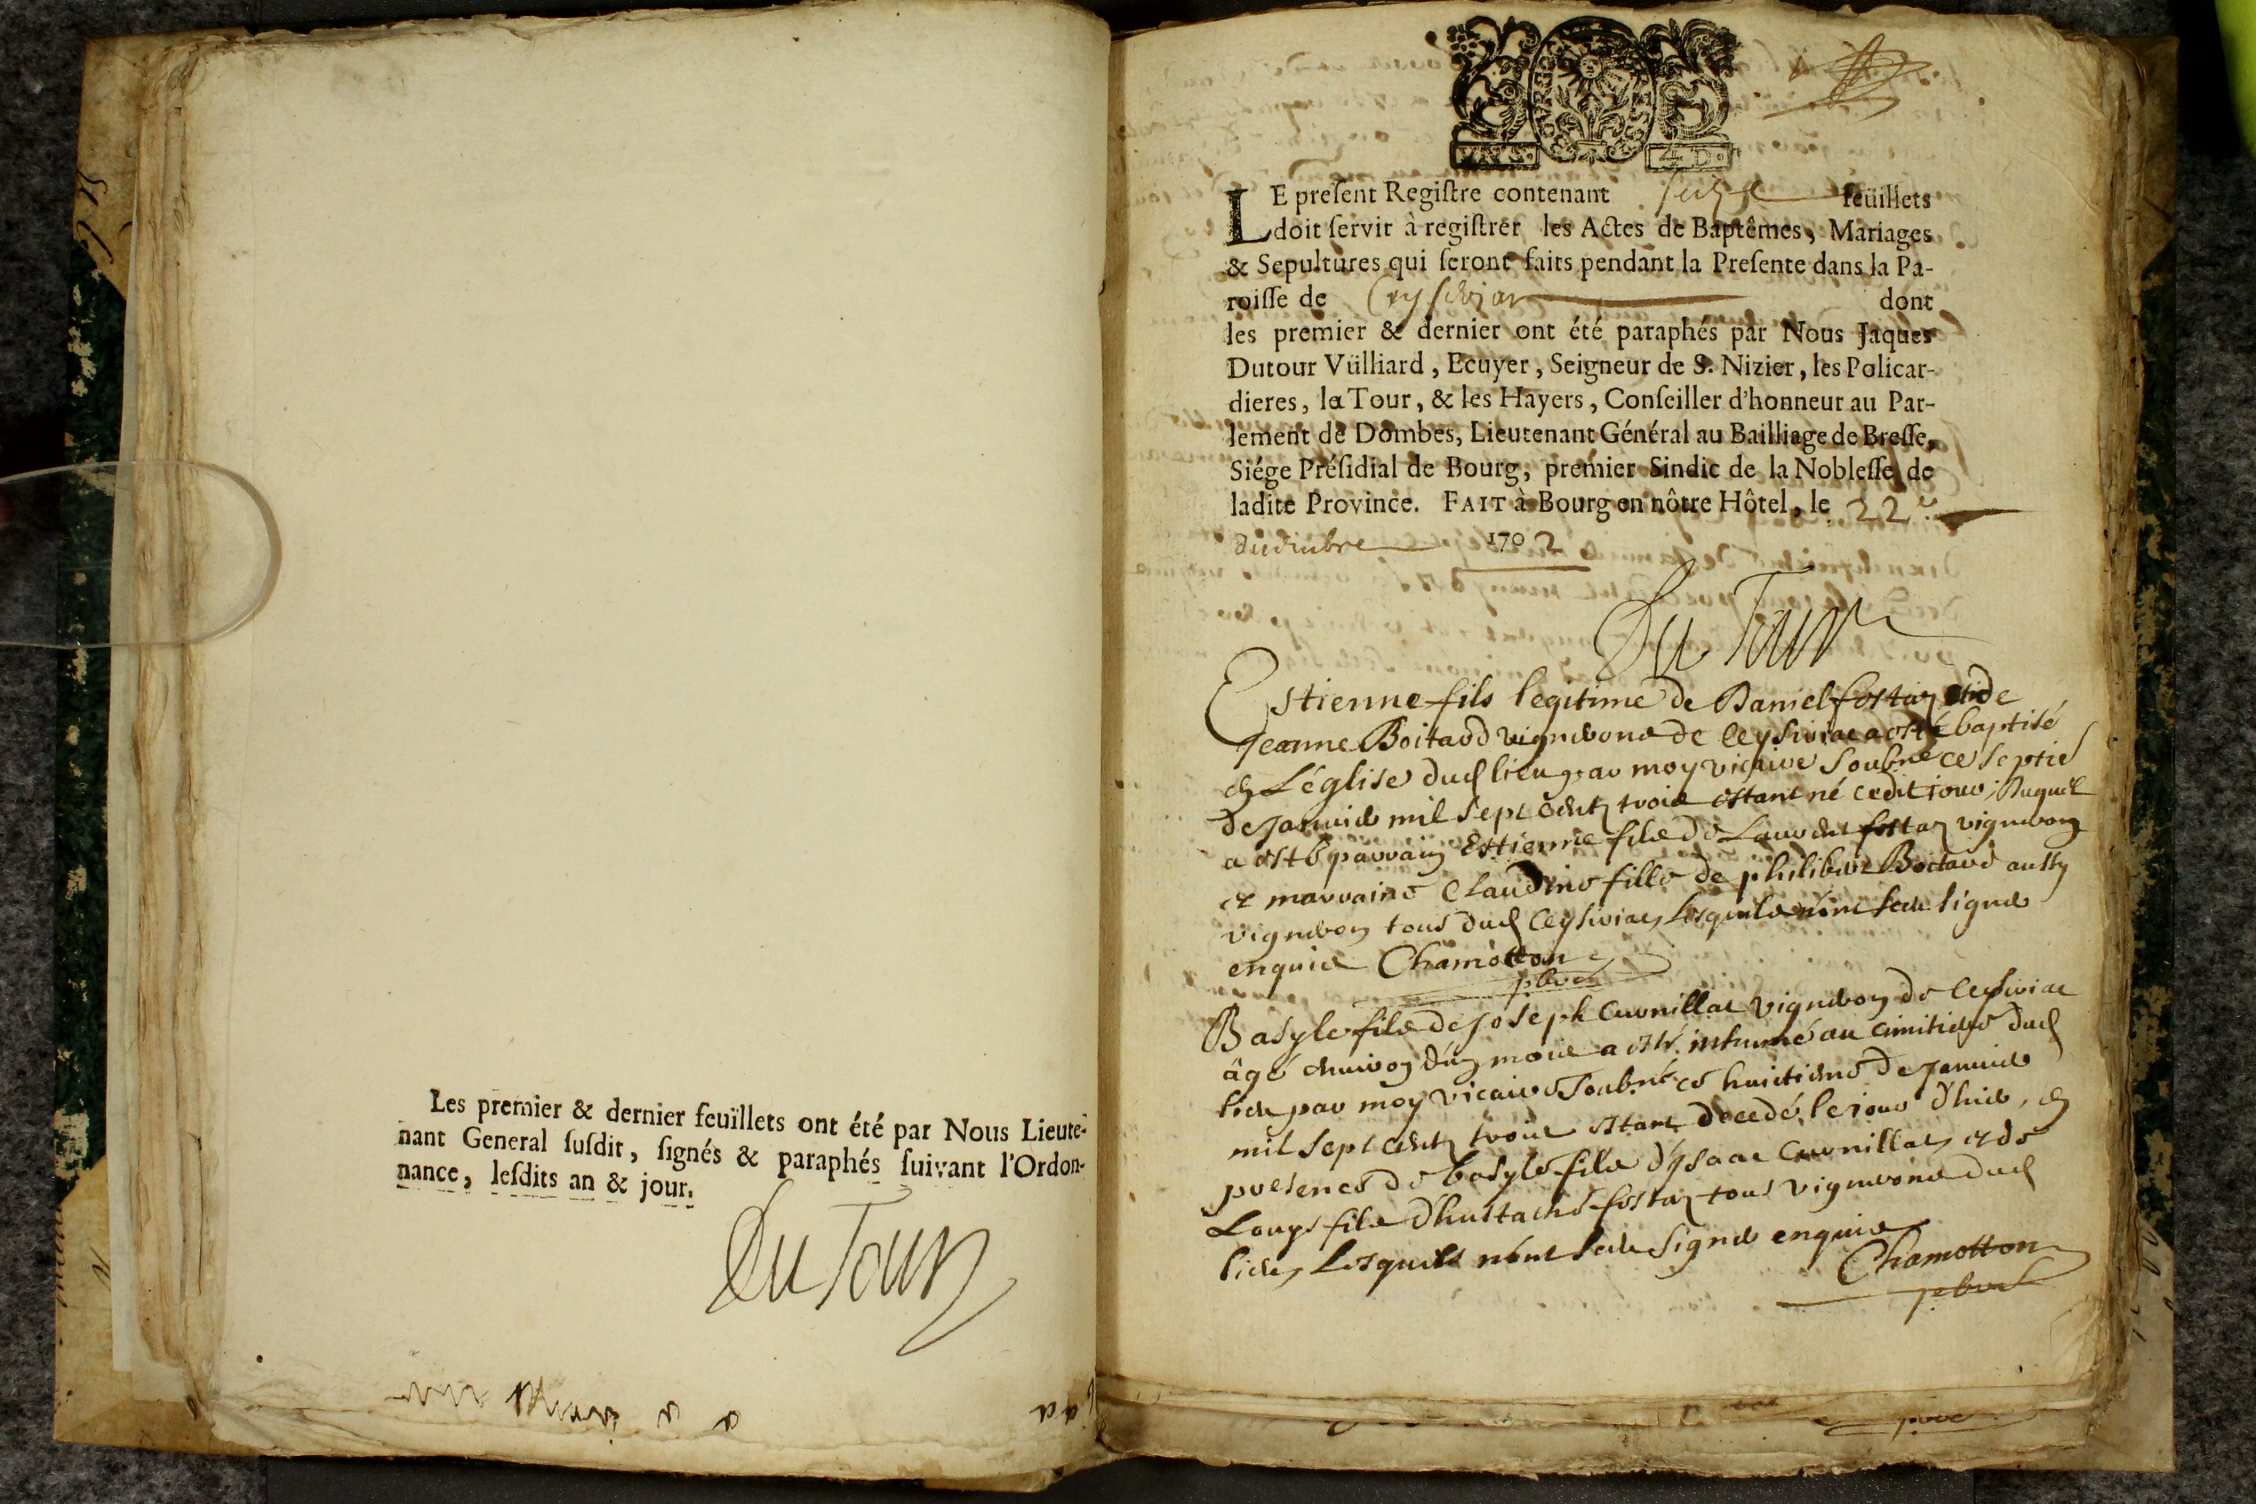 Les premier & dernier feuïllets ont été par Nous Lieute-
nant General ſuſdit, ſignés & paraphés ſuivant l'Ordon-
nance, leſdits an & jour.
Du Tour
LE preſent Regiſtre contenant seize feüillets
doit ſervir à regiſtrer les Actes de Baptêmes, Mariages
& Sepultures qui ſeront faits pendant la Preſente dans la Pa-
roiſſe de Ceyseriat dont
les premier & dernier ont été paraphés par Nous Jaques
Dutour Vülliard, Ecuyer, Seigneur de S. Nizier, les Policar-
dieres, la Tour, & les Hayers, Conſeiller d'honneur au Par-
lement de Dombes, Lieutenant Général au Bailliage de Breſſe,
Siége Préſidial de Bourg, premier Sindic de la Nobleſſe de
ladite Province. FAIT à Bourg en nôtre Hôtel, le 22e
decembre 1702
Du Tour
Estienne fils legitime de Daniel et de
Jeanne Boitard vignerons de Ceyseriac a esté baptisé
en L'église dud lieu par moy vicaire soubné ce septie
de Janvier mil sept centz trois estant né cedit iour, Auquel
a esté parrain Estienne fils de Laurent vigneron
et marraine Claudine fille de philibert Boitard aussy
vigneron tous dud Ceyseriac, Lesquels n'ont sceu signer
enquis Chamotton
pbre
Basyle fils de Joseph Cuvnillat vigneron de Ceyseriac
âgé environ d'un mois a esté inhumé au cimitiere dud
lieu par moy vicaire Soubné ce huictieme de Janvier
mil sept centz trois estant decedé le iour d'hier, en
presence de basyle fils d'ysaac Cuvnillat, et de
Louys fils d'hustache tous vignerons dud
lieu, Lesquels n'ont sceu signer enquis
Chamotton
pbre